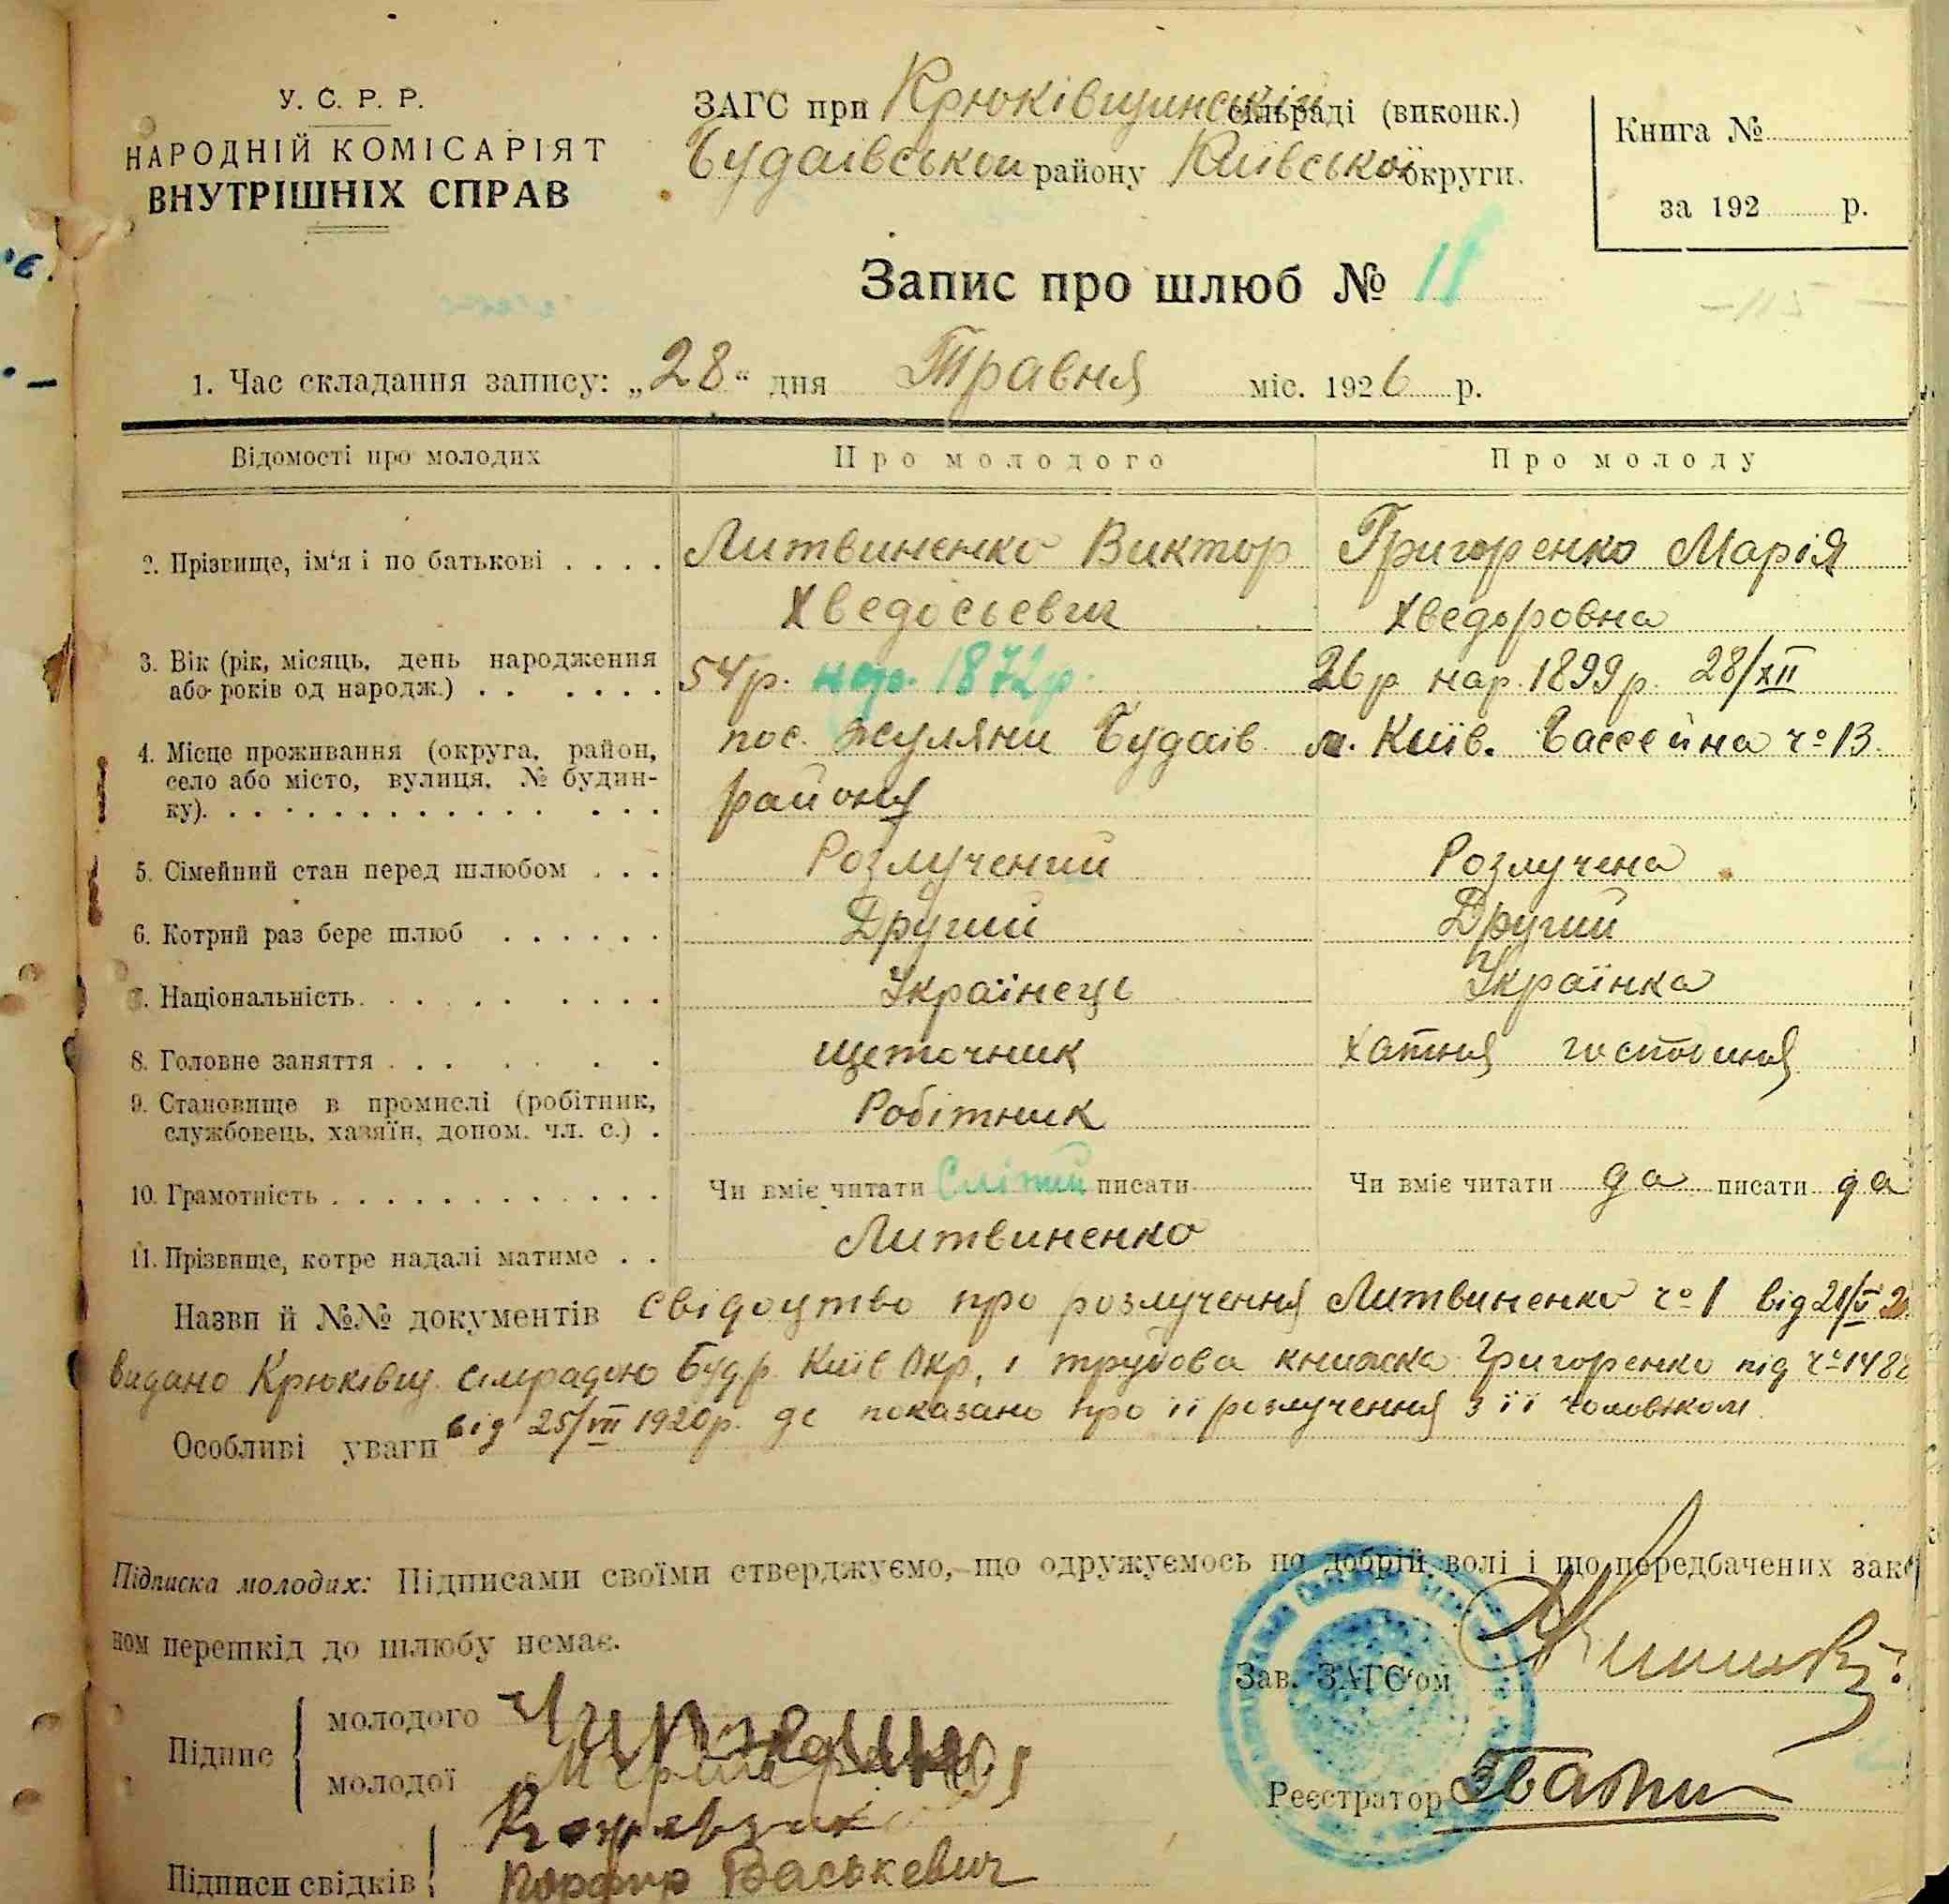 У. С. Р. Р.
НАРОДНІЙ КОМІСАРІЯТ
ВНУТРІШНІХ СПРАВ
ЗАГС при Крюківщинській сільраді (виконк.)
Будаївськои району Київської округи.
Книга №
за 192 р.
Запис про шлюб № 11
1. Час складання запису: „28“ дня Травня міс. 1926 р.
Відомості про молодих Про молодого Про молоду
2. Прізвище, ім‘я і по батькові . . . . Литвиненко Виктор Григоренко Марія
Хведосьевич Хведоровна
3. Вік (рік, місяць, день народження 54р. нар. 1872р. 26р нар. 1899р. 28/XII
або років од народж.) . . . . . .
4. Місце проживання (округа, район, пос. Жуляни Будаїв м. Київ. Бассейна ч⁰ 13.
село або місто, вулиця, № будин- района
ку). . . . . . . . . . . . . . . .
5. Сімейний стан перед шлюбом . . . Розлучений Розлучена
6. Котрий раз бере шлюб . . . . . . Другий Другий
7. Національність. . . . . . . . . Українець Українка
8. Головне заняття . . . . . . щеточник хатня господиня
9. Становище в промислі (робітник, Робітник
службовець, хазяїн, допом. чл. с.) .
10. Грамотність . . . . . . . . . . . . Чи вміє читати Сліпий писати Чи вміє читати да писати да
11. Прізвище, котре надалі матиме . . Литвиненко
Назви й №№ документів свідоцтво про розлучення Литвиненко ч⁰ 1 від
видано Крюківщ. сільрадою Буд р. Київ Окр, і трудова книжка Григоренко під
від 25/VIII 1920р. де показано про її розлучення з її чоловіком
Особливі уваги
Підписка молодих: Підписами своїми стверджуємо, що одружуємось по добрій волі і що передбачених зако
ном перешкід до шлюбу немає.
Зав. ЗАГС‘ом
Підпис
молодого
молодої
Реєстратор
Підписи свідків
Васькевич